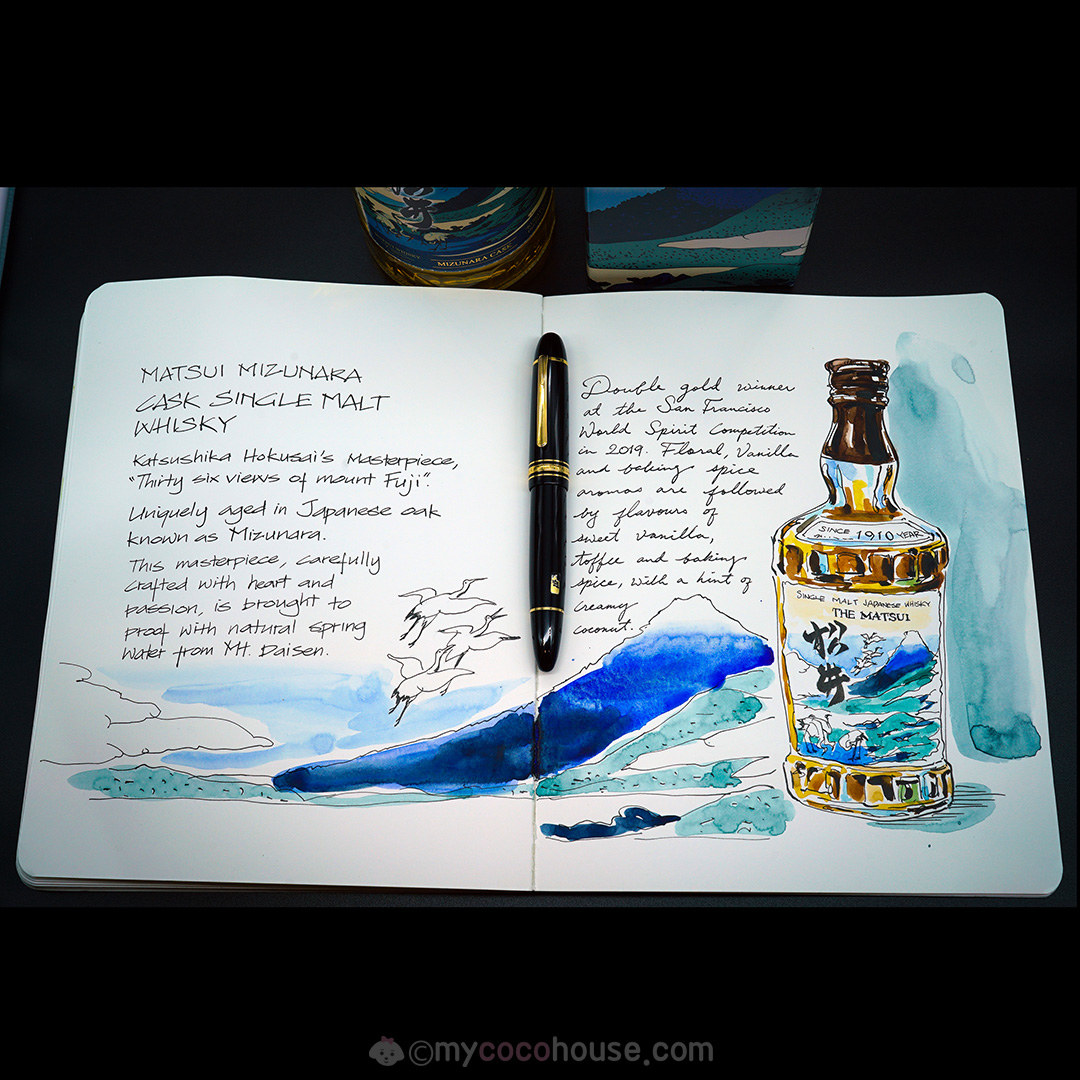 松井
WHISKY
MIZUNARA CASK
MATSUI MIZUNARA
CASK SINGLE MALT
WHISKY
Katsushika Hokusai's Masterpiece,
"Thirty six views of mount Fuji".
Uniquely aged in Japanese oak
known as Mizunara.
This masterpiece, carefully
crafted with heart and
passion, is brought to
proof with natural spring
water from Mt. Daisen.
Double gold winner
at the San Francisco
World Spirit Competition
in 2019. Floral, Vanilla
and baking spice
aromas are followed
by flavours of
sweet vanilla,
toffee and baking
spice, with a hint of
creamy
coconut.
SINCE 1910 YEAR
SINGLE MALT JAPANESE WHISKY
THE MATSUI
松井
©mycocohouse.com